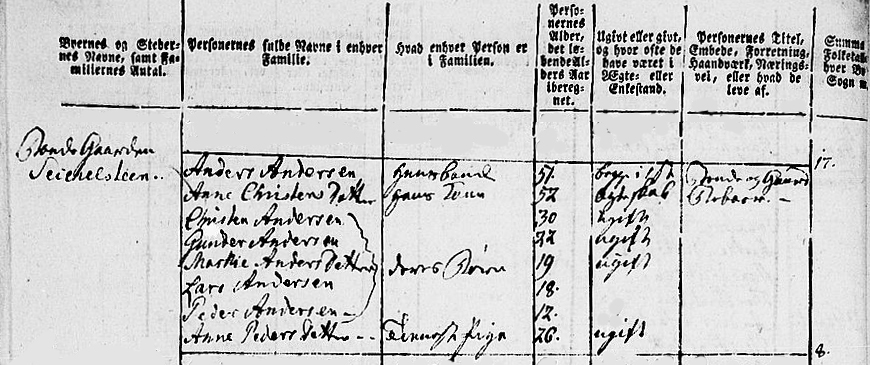 Byernes og Steder-
nes Navne, samt Fa-
miliernes Antal.
Personernes fulde Navne i enhver
Familie.
Hvad enhver Person er
i Familien.
Perso-
nernes
Alder,
det lø-
bende Al-
ders Aar
iberegnet.
Ugivt eller givt,
og hvor ofte de
have været i
Ægte- eller
Enkestand.
Personernes Titel,
Embede, Forretning,
Haandværk, Nærings-
vei, eller hvad de
leve af.
Summa
Folketal
hver By
Sogn
17.
Bonde Gaarden
Anders Andersen Huusbonde 51. begge i 1ste Bonde og Gaard
Anne Christens Datter hans Kone 52 ægteskab Beboer
Christen Andersen 30 ugift
Gunder Andersen 22 ugift
Markie Anders Datter deres Børn 19 ugift
Lars Andersen 18.
Peder Andersen 12.
Anne Peders Datter Tienneste Pige 26. ugift
8.